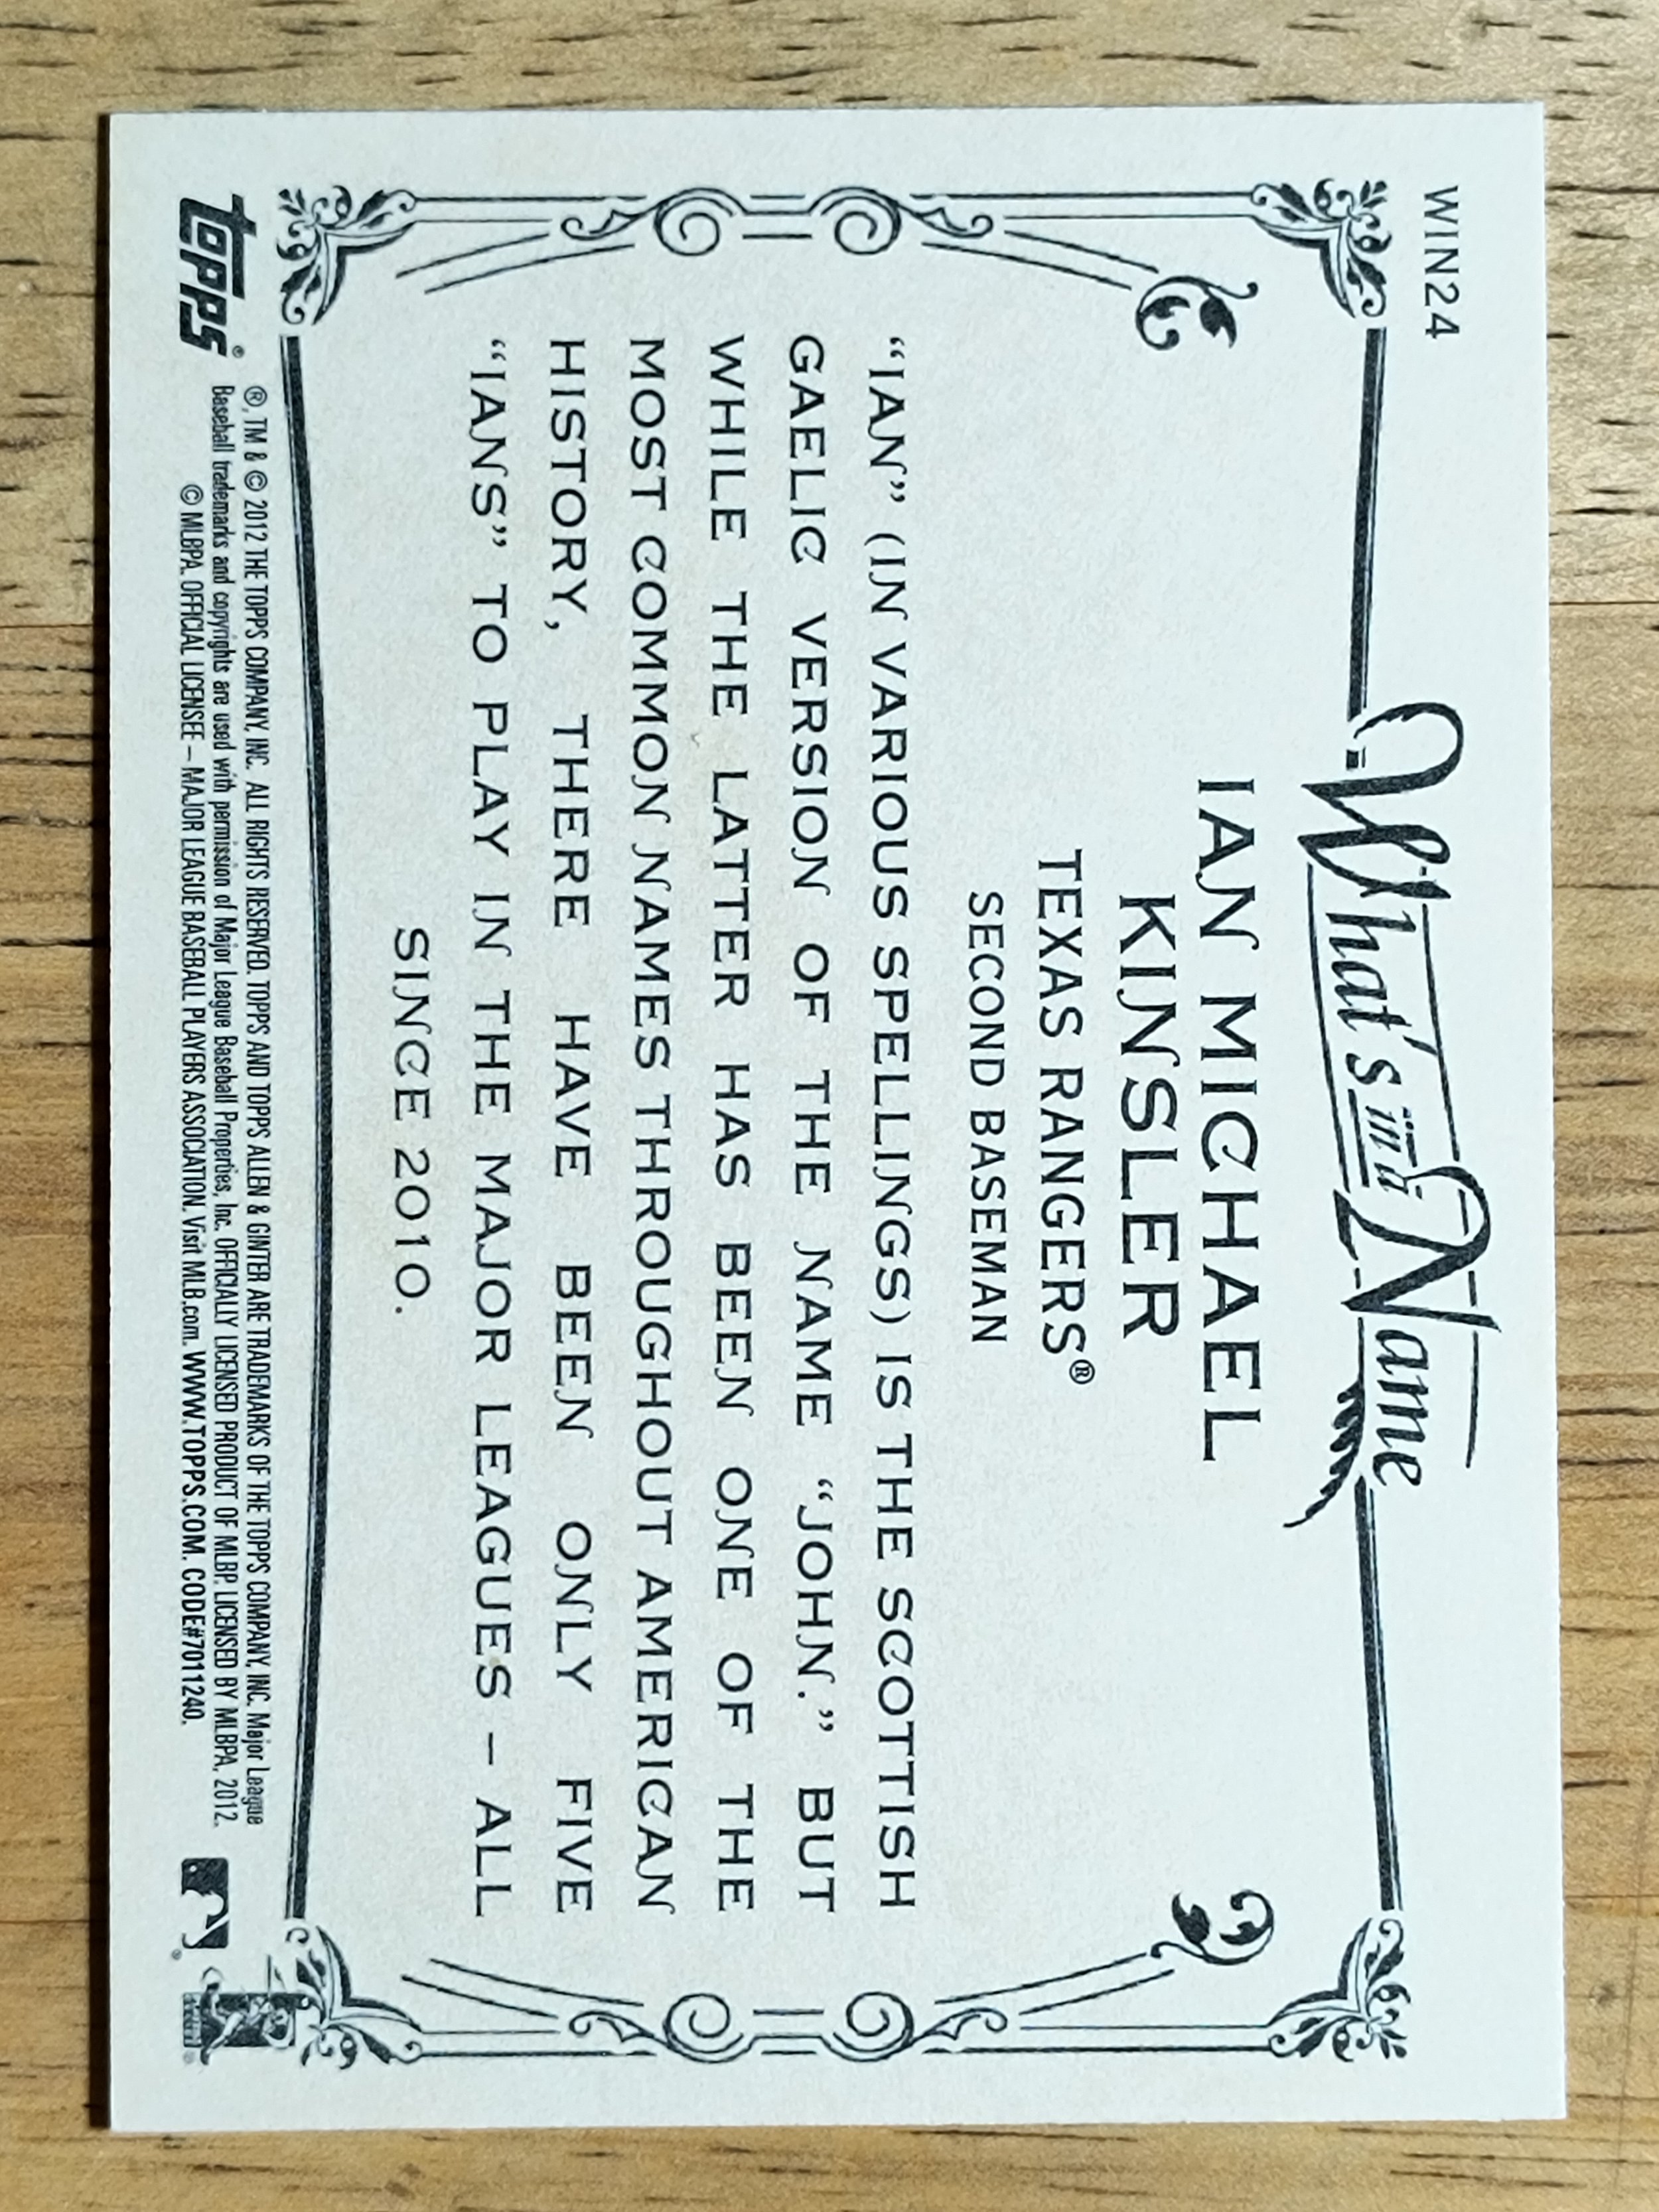 WIN24
What's in a Name
IAN MICHAEL
KINSLER
TEXAS RANGERS®
SECOND BASEMAN
“IAN” (IN VARIOUS SPELLINGS) IS THE SCOTTISH
GAELIC VERSION OF THE NAME “JOHN.” BUT
WHILE THE LATTER HAS BEEN ONE OF THE
MOST COMMON NAMES THROUGHOUT AMERICAN
HISTORY, THERE HAVE BEEN ONLY FIVE
“IANS” TO PLAY IN THE MAJOR LEAGUES – ALL
SINCE 2010.
topps®
®, TM & © 2012 THE TOPPS COMPANY, INC. ALL RIGHTS RESERVED. TOPPS AND TOPPS ALLEN & GINTER ARE TRADEMARKS OF THE TOPPS COMPANY, INC. Major League
Baseball trademarks and copyrights are used with permission of Major League Baseball Properties, Inc. OFFICIALLY LICENSED PRODUCT OF MLBP. LICENSED BY MLBPA, 2012.
© MLBPA. OFFICIAL LICENSEE – MAJOR LEAGUE BASEBALL PLAYERS ASSOCIATION. Visit MLB.com. WWW.TOPPS.COM. CODE#7011240.